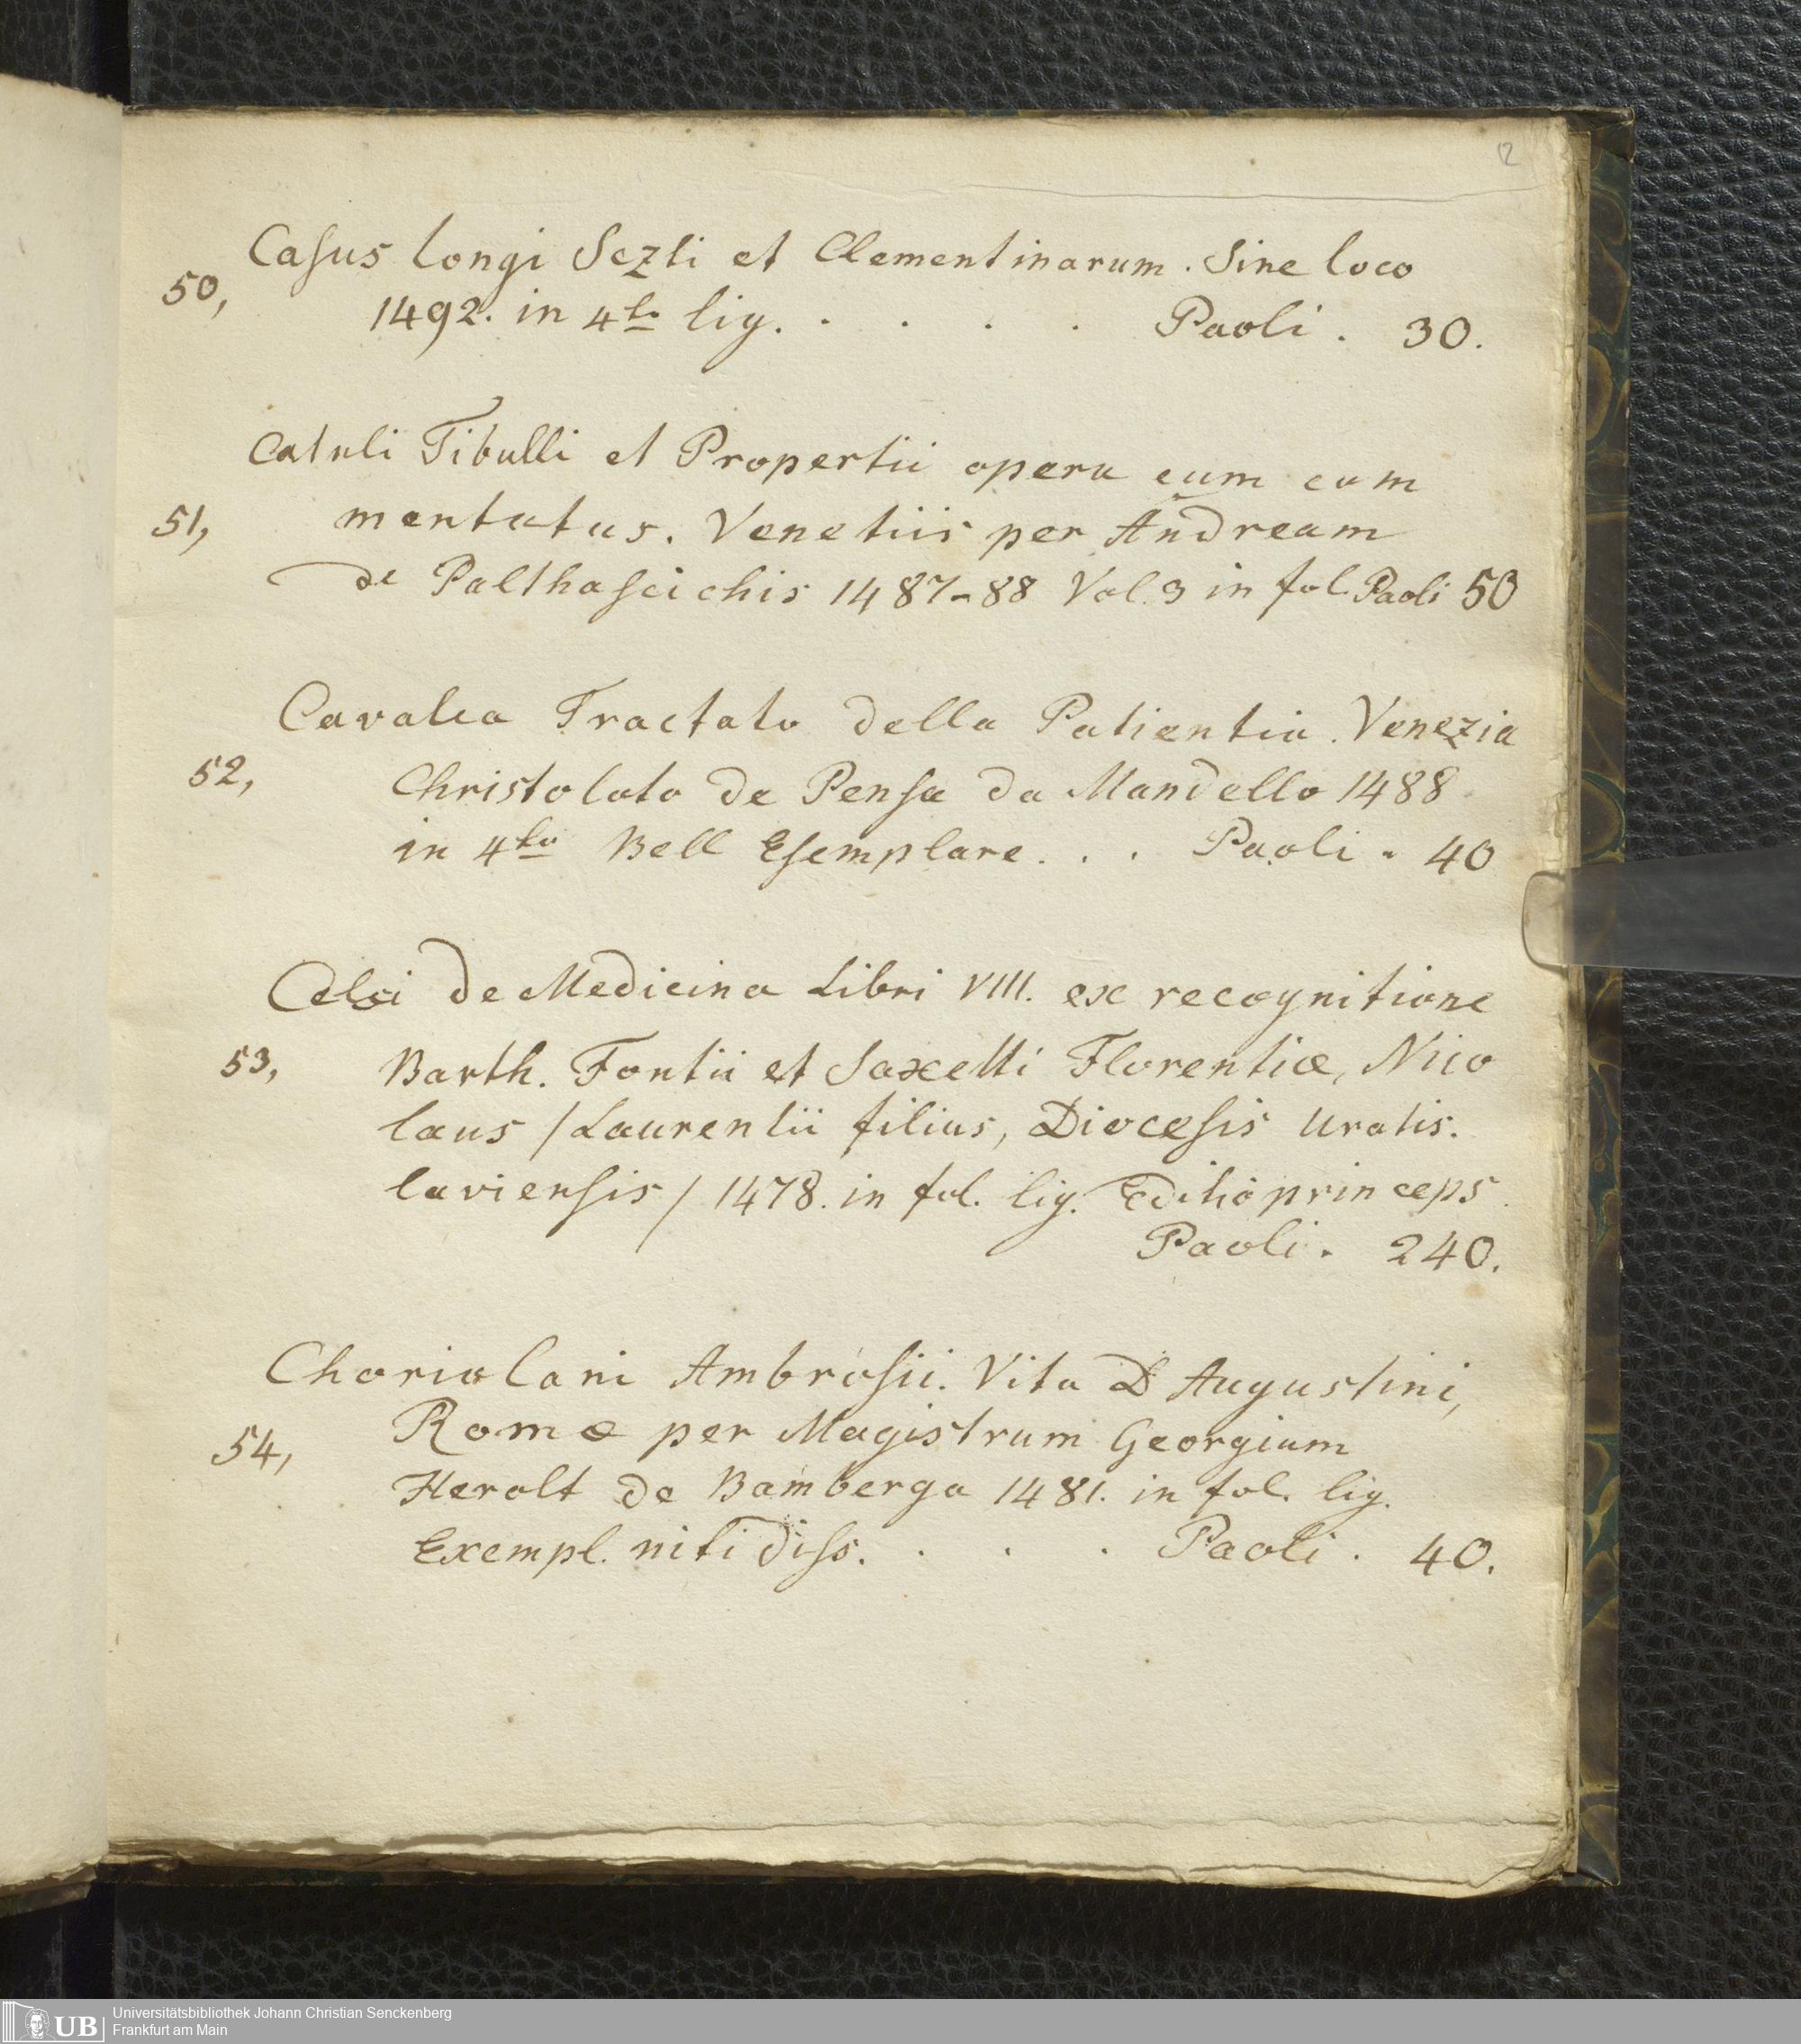 12
Casus longi Sezti et Clementinarum. Sine loco
50, 1492. in 4to lig. . . . . Paoli . 30.
Catuli Tibulli et Propertii opera cum com
51, mentatus. Venetiis per Andream
de Palthascichis 1487-88 Vol. 3 in fol. Paoli 50
Cavalca Tractato della Patientia. Venezia
52, Christolato de Pensa da Mandello 1488
in 4to Bell Esemplare . . . Paoli . 40
Celsi de Medicina Libri VIII. ex recognitione
53, Barth. Fontii et Saxetti Florentiæ, Nico
laus /Laurentii filius, Diocesis Uratis.
laviensis/ 1478. in fol. lig. Editio princeps.
Paoli . 240.
Choriolani Ambrosii. Vita D Augustini,
54, Romæ per Magistrum Georgium
Herolt de Bamberga 1481. in fol. lig.
Exempl. nitidiss. . . . Paoli . 40.
UB
Universitätsbibliothek Johann Christian Senckenberg
Frankfurt am Main